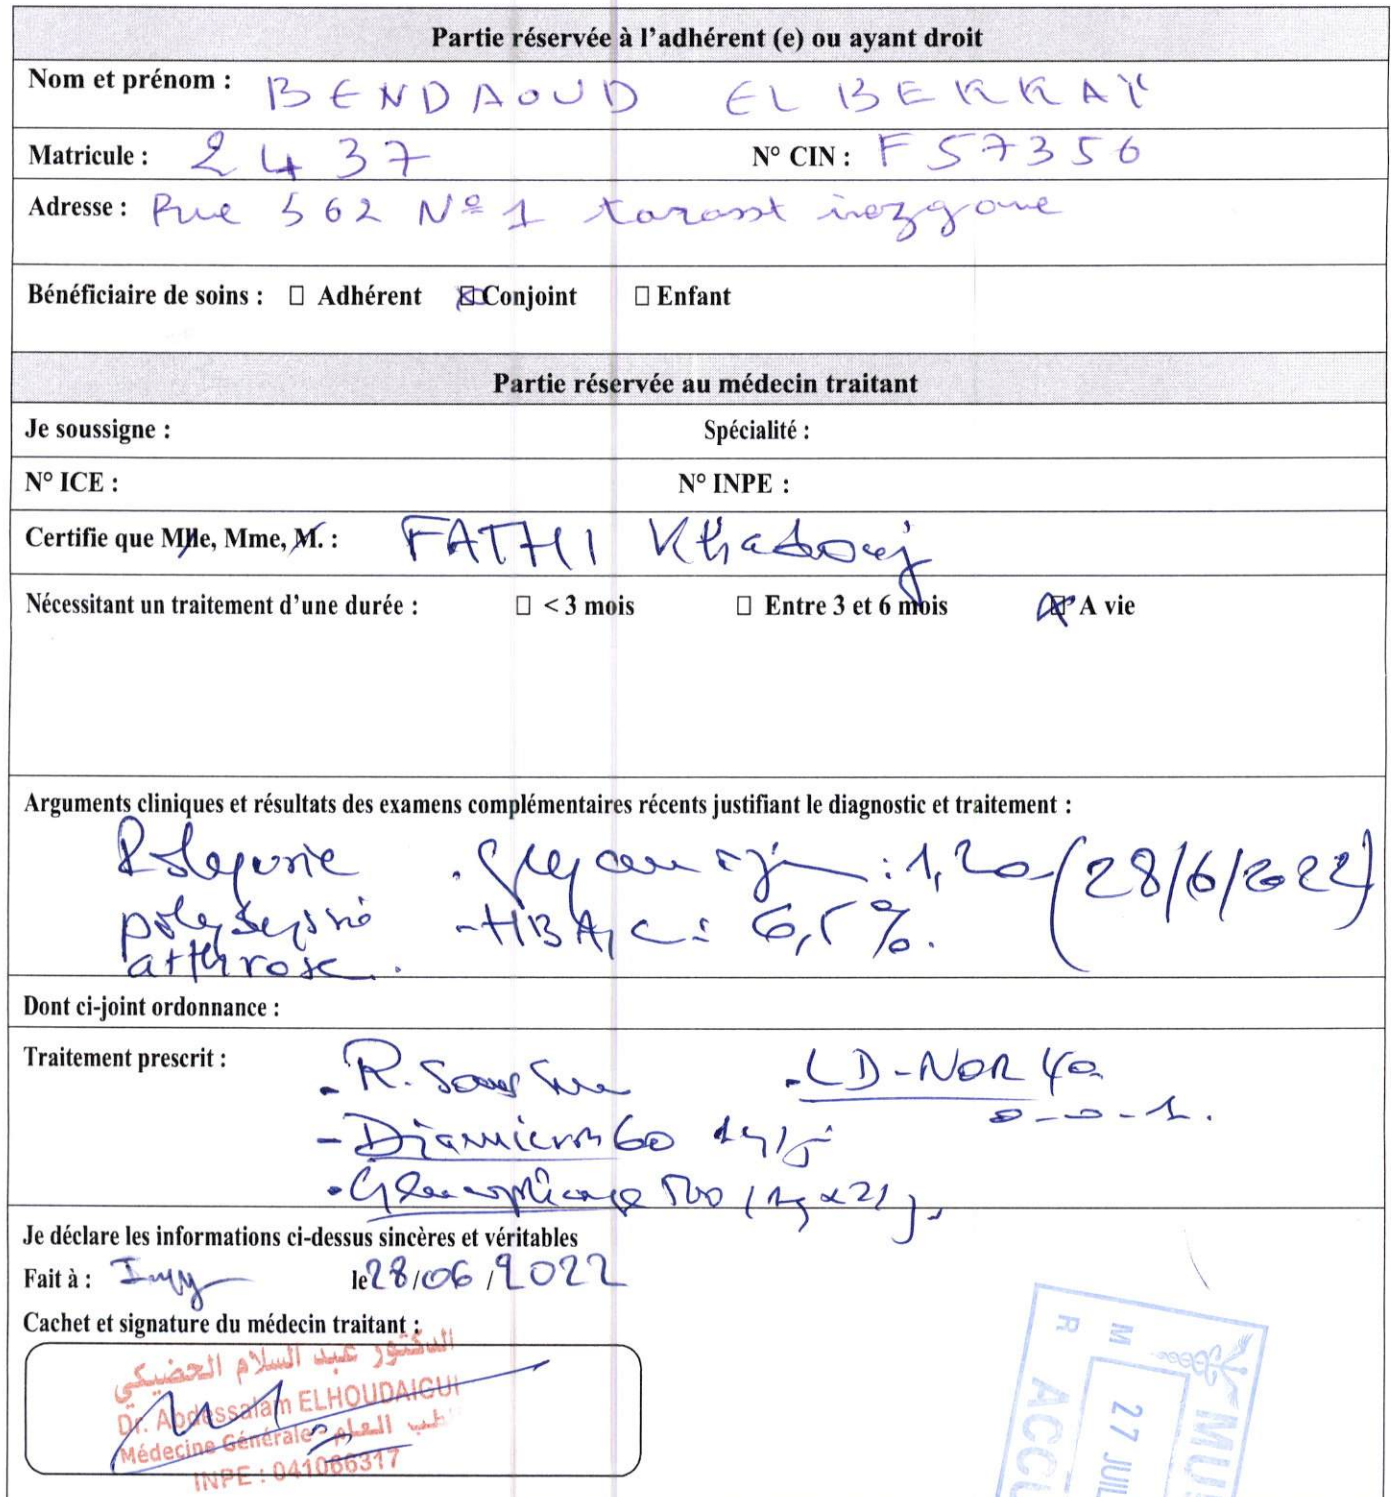 Partie réservée à l'adhérent (e) ou ayant droit
Nom et prénom : BENDAOUD EL BEKKAÏ
Matricule : 2437 N° CIN : F57356
Adresse : Rue 562 Nº 1 tarasst inezgane
Bénéficiaire de soins : ☐ Adhérent ☒ Conjoint ☐ Enfant
Partie réservée au médecin traitant
Je soussigne : Spécialité :
N° ICE : N° INPE :
Certifie que Mlle, Mme, M. : FATHI Khadouj
Nécessitant un traitement d'une durée : ☐ < 3 mois ☐ Entre 3 et 6 mois ☒ A vie
Arguments cliniques et résultats des examens complémentaires récents justifiant le diagnostic et traitement :
: 1,20 (28/6/2022)
- HBA1C : 6,5 %.
arthrose.
Dont ci-joint ordonnance :
Traitement prescrit : - R. Sans - LD-NOR 40
0-0-1.
- Diamicron 60 1
- Glucophage 500 (
Je déclare les informations ci-dessus sincères et véritables
Fait à : le 28/06/2022
Cachet et signature du médecin traitant :
الدكتور عبد السلام الحضيكي
Dr. Abdessalam ELHOUDAIGUI
Médecine Générale الطب العام
INPE : 041086317
R M
ACCU
27 JUIL
MU